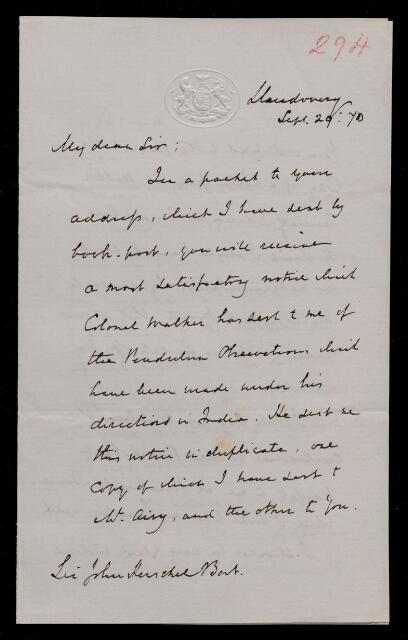 294
Llandovery
Sept. 20/70
My dear Sir;
In a packet to your
address, which I have sent by
book-post, you will receive
a most satisfactory notice which
Colonel Walker has sent to me of
the Pendulum Observations which
have been made under his
directions in India. He sent me
this notice in duplicate, one
copy of which I have sent to
Mr. Airy, and the other to You.
Sir John Herschel Bart.